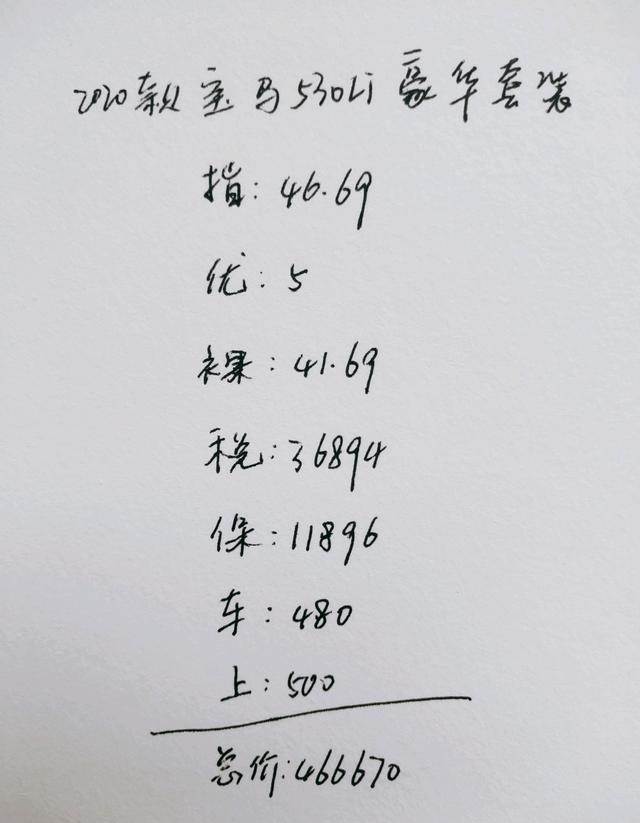 2020款宝马530Li豪华套装
指：46.69
优：5
裸：41.69
税：36894
保：11896
车：480
上：500
总价：466670